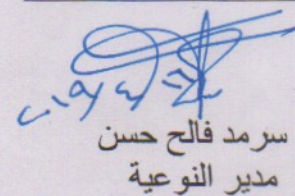 سرمد فالح حسن
مدير النوعية